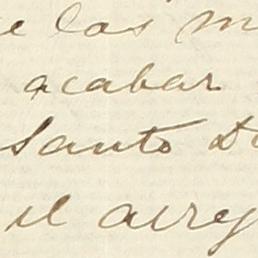 e las m
acabar
Santo Do
il arreg